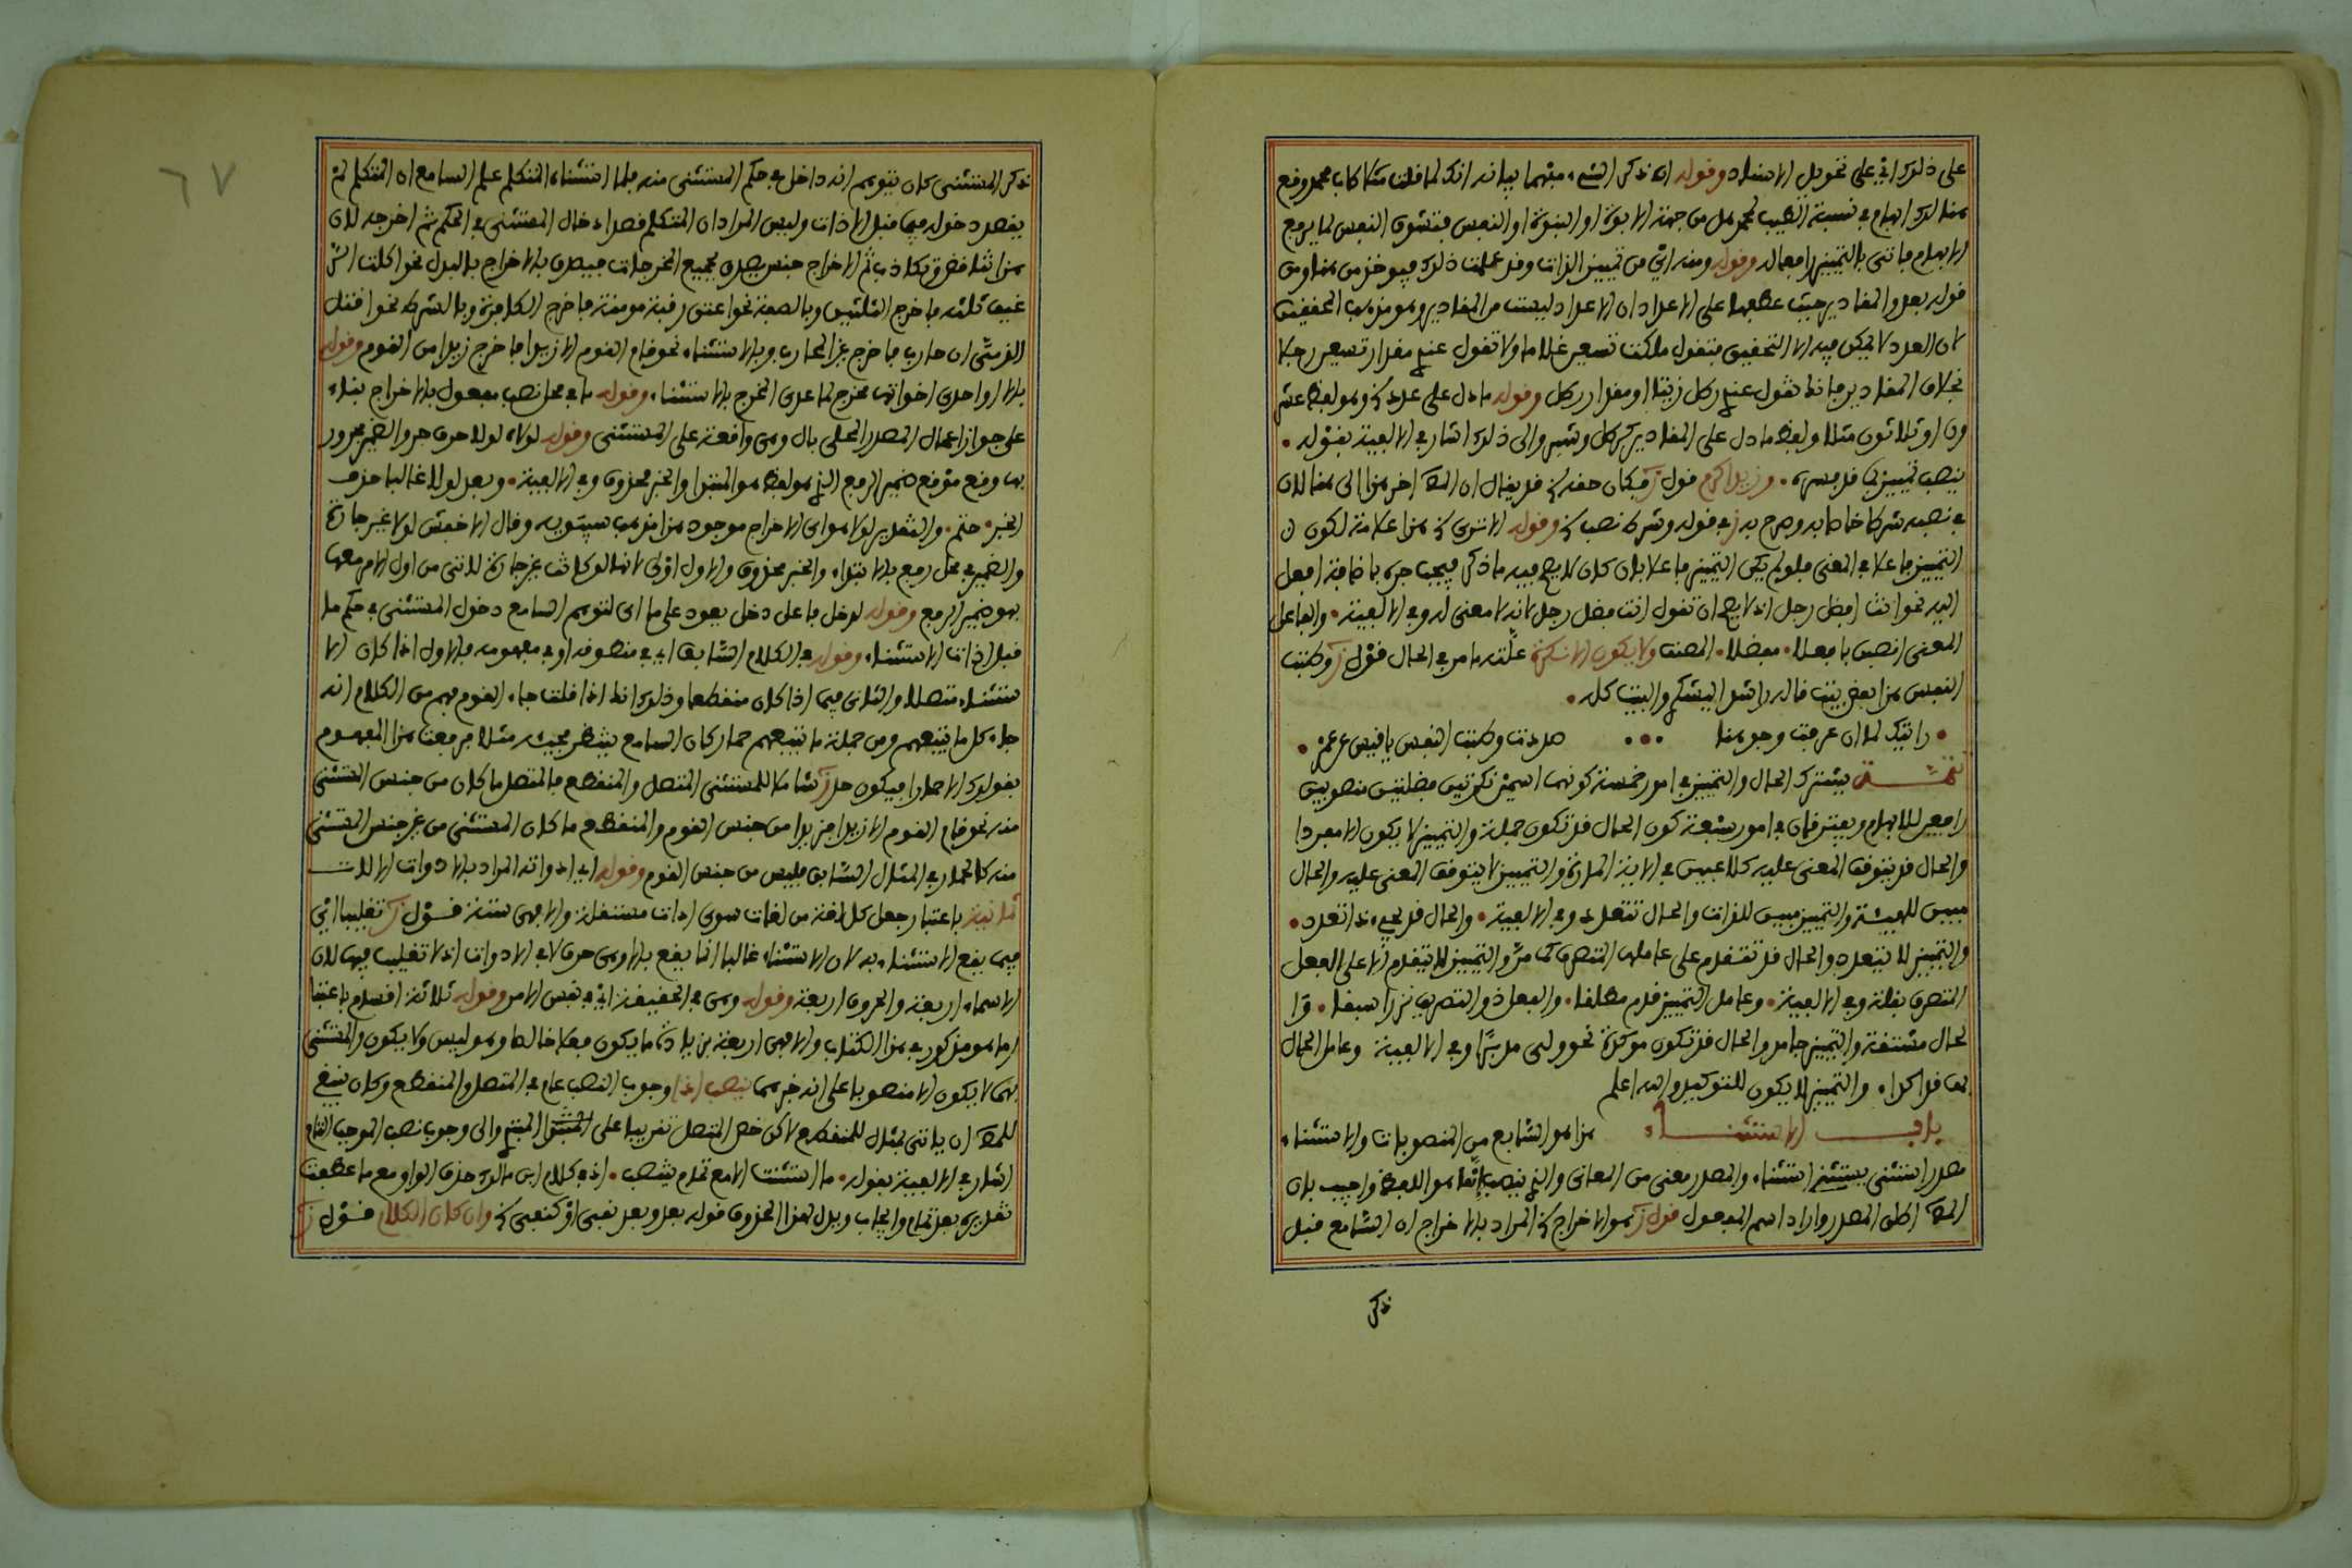 على ذلك اي على تحويل الاسناد وقوله ان ذكر الشيء مبهما بيانه انك لما قلت مثلا طاب محمد وقع
هنالك ابهام في نسبة الطيب لمحمد هل من جهة الابوة او البنوة او النفس فتتشوق النفس لما يرفع
الابهام فاتى بالتمييز وقوله ومنه اي من تمييز الذات وقد علمت ذلك فيوخذ من هنا ومن
قوله بعد والمقادير حيث عطفها على الاعداد ان الاعداد ليست من المقادير وهو مذهب المحققين
لان العدد لا يمكن فيه الا التحقيق فتقول ملكت تسعين غلاما ولا تقول عندي مقدار تسعين رجلا
بخلاف المقادير فانك تقول عندي رطل زيتا او مقدار رطل وقوله ما دل على عدد وهو لفظ عشر
ون او ثلاثون مثلا ولفظ ما دل على المقادير كرطل وشبر والى ذلك اشار في الالفية بقوله •
ينصب تمييزا بما قد فسره • وزيد اكرم قول ز فكان حقه قد يقال ان المص اخر هذا الى هنا لان
في نصبه شرطا خاصا به وصرح به ز في قوله وشرط نصب وقوله الا ترى هذا علامة لكون
التمييز فاعلا في المعنى فلو لم يكن التمييز فاعلا بان كان لا يصح فيه ما ذكر فيجب جره باضافة افعل
اليه نحو انت افضل رجل اذ لا يصح ان تقول انت فضل رجل لانه لا معنى له وفي الالفية • والفاعل
المعنى انصبن بافعلا • مفضلا • المصنف ولا يكون الا نكرة علته ما مر في الحال قول ز وطبت
النفس هذا بعض بيت قاله راشد اليشكري والبيت كله •
• رايتك لما ان عرفت وجوهنا ••• صددت وطبت النفس يا قيس عن عمرو •
تتمة يشترك الحال والتمييز في امور خمسة كونهما اسمين نكرتين فضلتين منصوبين
رافعين للابهام ويفترقان في امور سبعة كون الحال قد تكون جملة والتمييز لا يكون الا مفردا
والحال قد يتوقف المعنى عليه كلاعبين في الاية المارة والتمييز لا يتوقف المعنى عليه والحال
مبين للهيئة والتمييز مبين للذات والحال تتعدد وفي الالفية • والحال قد يجيء ذا تعدد •
والتمييز لا يتعدد والحال قد تتقدم على عاملها المتصرف كما مر والتمييز لا يتقدم الا على الفعل
المتصرف بقلة وفي الالفية • وعامل التمييز قدم مطلقا • والفعل ذو التصريف نزرا سبقا • وا
لحال مشتقة والتمييز جامد والحال قد تكون موكدة نحو ولى مدبرا وفي الالفية وعامل الحال
بها قد اكدا • والتمييز لا يكون للتوكيد والله اعلم
باب الاستثناء هذا هو السابع من المنصوبات والاستثناء
مصدر استثنى يستثني استثناء والمصدر معنى من المعاني والذي ينصب انما هو اللفظ واجيب بان
المص اطلق المصدر واراد اسم المفعول قول ز هو الاخراج المراد بالاخراج ان السامع قبل
ذكر
٦٧
ذكر المستثنى كان يتوهم انه داخل في حكم المستثنى منه فلما استثناه المتكلم علم السامع ان المتكلم لم
يقصد دخوله فيما قبل الاداة وليس المراد ان المتكلم قصد ادخال المستثنى في الحكم ثم اخرجه لان
هذا تناقض وتكاذب ثم الاخراج جنس يصدق بجميع المخرجات فيصدق بالاخراج بالبدل نحو اكلت الر
غيف ثلثه فاخرج الثلثين وبالصفة نحو اعتق رقبة مومنة فاخرج الكافرة وبالشرط نحو اقتل
الذمي ان حارب فاخرج غير المحارب وبالاستثناء نحو قام القوم الا زيدا فاخرج زيدا من القوم وقوله
بالا او احدى اخواتها مخرج لما عدى المخرج بالاستثناء وقوله ما في محل نصب مفعول بالاخراج بناء
على جواز اعمال المصدر المحلى بال وهي واقعة على المستثنى وقوله لولاه لولا حرف جر والضمير مجرور
بها وقع موقع ضمير الرفع الذي هو لفظ هو المبتدا والخبر محذوف وفي الالفية • وبعد لولا غالبا حذف
الخبر • حتم • والتقدير لولا هو اي الاخراج موجود هذا مذهب سيبويه وقال الاخفش لولا غير جارة
والضمير في محل رفع بالابتداء والخبر محذوف والاول اولى لانها لو كانت غير جارة لاتى من اول الامر معها
بهو ضمير الرفع وقوله لدخل فاعل دخل يعود على ما اي لتوهم السامع دخول المستثنى في حكم ما
قبل اداة الاستثناء وقوله في الكلام السابق اي في منطوقه او في مفهومه فالاول اذا كان الا
ستثناء متصلا والثاني فيما اذا كان منقطعا وذلك انك اذا قلت جاء القوم فهم من الكلام انه
جاء كل ما يتبعهم ومن جملة ما يتبعهم حمار كان السامع ينتظر مجيئه مثلا فرفعت هذا المفهوم
بقولك الا حمارا فيكون حد ز شاملا للمستثنى المتصل والمنقطع فالمتصل ما كان من جنس المستثنى
منه نحو قام القوم الا زيدا فزيدا من جنس القوم والمنقطع ما كان المستثنى من غير جنس المستثنى
منه كالحمار في المثال السابق فليس من جنس القوم وقوله اي ادواته المراد بالادوات الالات
ثمانية باعتبار جعل كل لغة من لغات سوى اداة مستقلة والا فهي ستة قول ز تغليبا اي
فيما يقع الاستثناء به لان الاستثناء غالبا انما يقع بالا وهي حرف لا في الادوات اذ لا تغليب فيها لان
الاسماء اربعة والحروف اربعة وقوله وهي في الحقيقة اي في نفس الامر وقوله ثلاثة اقسام باعتبا
ر ما هو مذكور في هذا الكتاب والا فهي اربعة بزيادة ما يكون فعلا خالصا وهو ليس ولا يكون والمستثنى
بهما لا يكون الا منصوبا على انه خبرهما ينصب اذا وجوب النصب عام في المتصل والمنقطع وكان ينبغي
للمص ان ياتي بمثال للمنقطع لاكن خص المتصل تقريبا على المبتدي والى وجوب نصب الموجب التام
اشار في الالفية بقوله • ما استثنت الا مع تمام ينتصب • اذ في كلام ابن مالك حذف الواو مع ما عطفت
تقديره بعد تمام وايجاب ويدل لهذا المحذوف قوله بعد وبعد نفي او كنفي وان كان الكلام قول ز